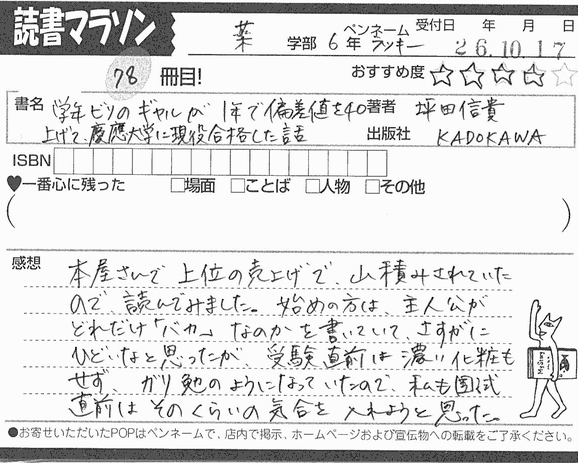 読書マラソン
薬 学部 6年 ペンネーム ラッキー 受付日 年 月 日
26.10.17
78 冊目! おすすめ度
書名 学年ビリのギャルが1年で偏差値を40 著者 坪田信貴
上げて、慶應大学に現役合格した話 出版社 KADOKAWA
ISBN
♥一番心に残った □場面 □ことば □人物 □その他
感想 本屋さんで上位の売上げで、山積みされていた
ので読んでみました。始めの方は、主人公が
どれだけ「バカ」なのかを書いていて、さすがに
ひどいなと思ったが、受験直前は濃い化粧も
せず、ガリ勉のようになっていたので、私も国試
直前はそのくらいの気合を入れようと思った。
●お寄せいただいたPOPはペンネームで、店内で掲示、ホームページおよび宣伝物への転載をご了承ください。